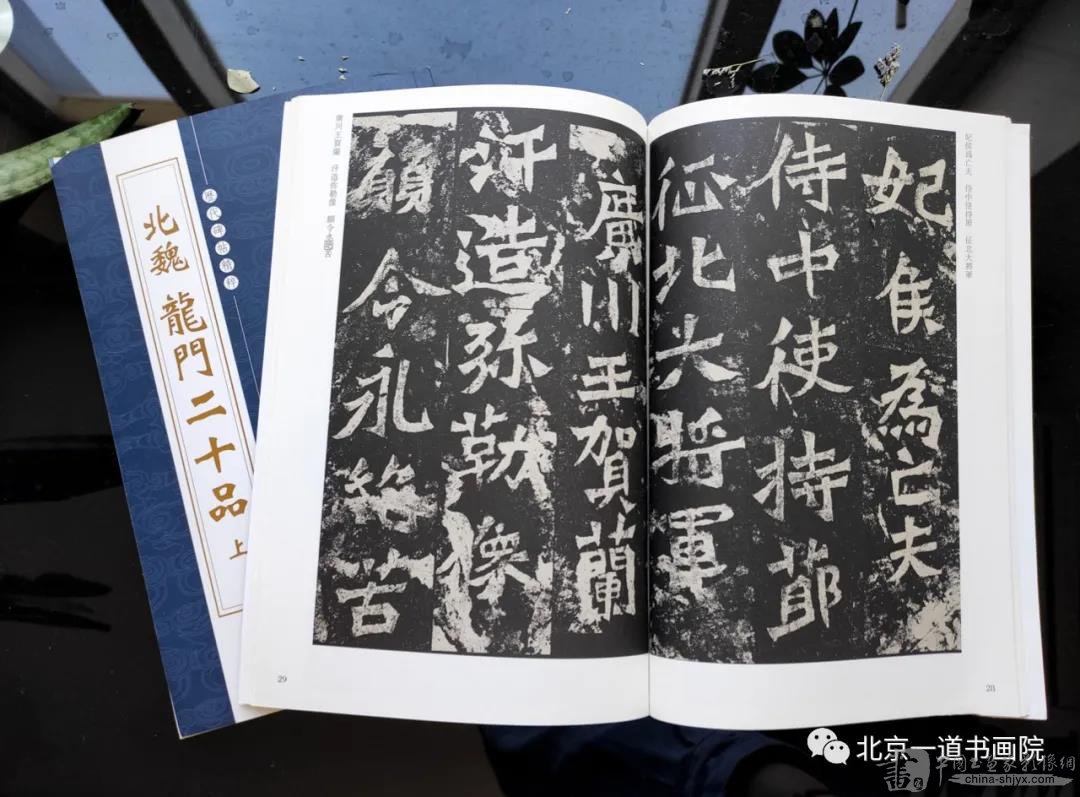 歷代碑帖精粹
北魏 龍門二十品 上
妃侯爲亡夫 侍中使持節 征北大將軍
妃侯為亡夫
侍中使持節
征北大將軍
28
廣川王賀蘭
汗造弥勒像
願令永絕苦
廣川王賀蘭 汗造弥勒像 願令永絕苦
29
北京一道书画院
china-shjyx.com